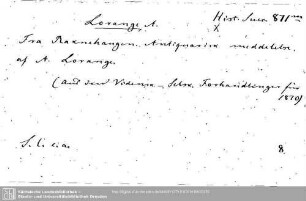 Lorange, A.
Hist. Suec. 871
Fra Raknehaugen. Antiquarisk meddelelse
af A. Lorange.
(aus den Vidensk. Selsk. Forhandlinger für
1870)
S. l. e. a.
8.
Sächsische Landesbibliothek -
Staats- und Universitätsbibliothek Dresden